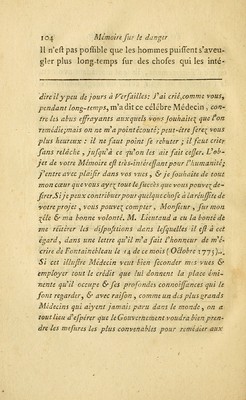 104 Mémoire sur le danger
Il n'est pas possible que les hommes puissent s'aveu-
gler plus long-temps sur des choses qui les inté-
dire il y peu de jours à Versailles: J'ai crié, comme vous,
pendant long-temps, m'a dit ce célèbre Médecin, con-
tre les abus effrayants auxquels vous souhaitez que l'on
remédie; mais on ne m'a point écouté; peut-être serez vous
plus heureux: il ne faut point se rebuter; il faut crier
sans relâche, jusqu'à ce qu'on les ait fait cesser. L'ob-
jet de votre Mémoire est très-intéressant pour l'humanité;
j'entre avec plaisir dans vos vues, & je souhaite de tout
mon cœur que vous ayez tout le succès que vous pouvez de-
sirer. Si je peux contribuer pour quelque chose à la réussite de
votre projet, vous pouvez compter, Monsieur, sur mon
zèle & ma bonne volonté. M. Lieutaud a eu la bonté de
me réitérer les dispositions dans lesquelles il est à cet
égard, dans une lettre qu'il m'a fait l'honneur de m'é-
crire de Fontainebleau le 14 de ce mois (Octobre 1773).
Si cet illustre Médecin veut bien seconder mes vues &
employer tout le crédit que lui donnent la place émi-
nente qu'il occupe & ses profondes connoissances qui le
font regarder, & avec raison, comme un des plus grands
Médecins qui aiyent jamais paru dans le monde, on a
tout lieu d'espérer que le Gouvernement voudra bien pren-
dre les mesures les plus convenables pour remédier aux